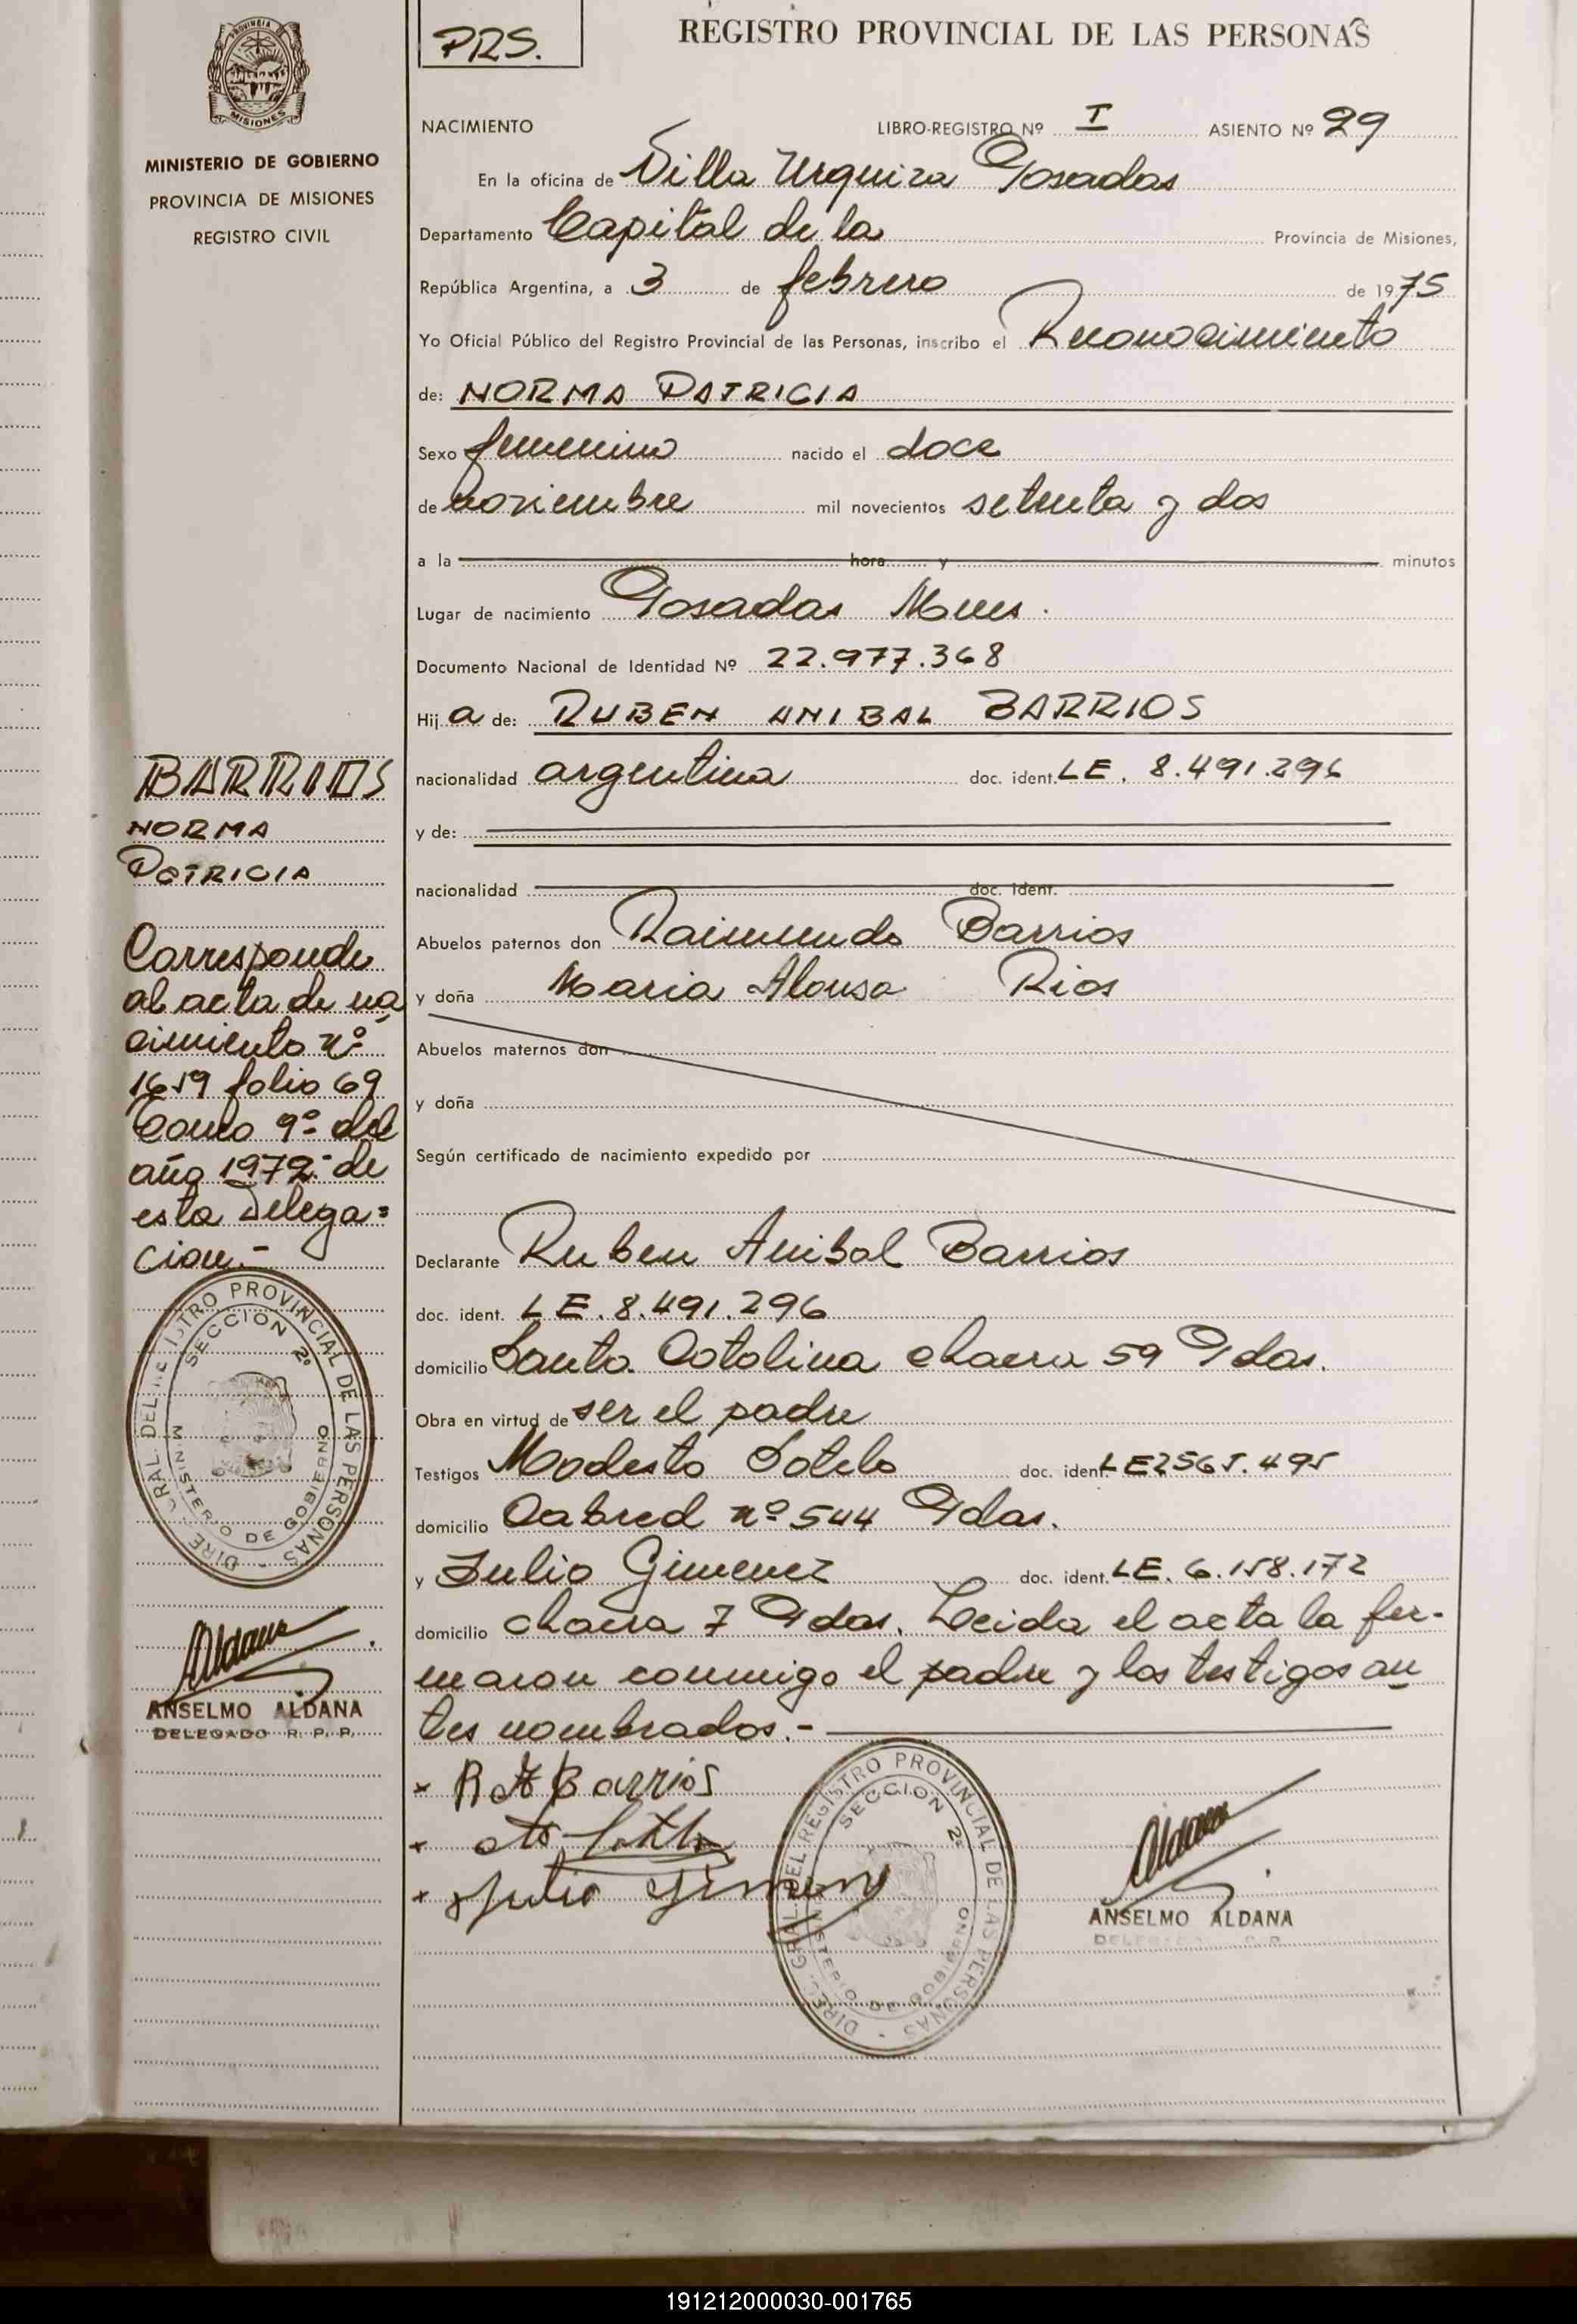 PROVINCIA
MISIONES
MINISTERIO DE GOBIERNO
PROVINCIA DE MISIONES
REGISTRO CIVIL
PRS.
REGISTRO PROVINCIAL DE LAS PERSONAS
NACIMIENTO LIBRO-REGISTRO Nº I ASIENTO Nº 29
En la oficina de Villa Urquiza Posadas
Departamento Capital de la Provincia de Misiones,
República Argentina, a 3 de febrero de 1975
Yo Oficial Público del Registro Provincial de las Personas, inscribo el Reconocimiento
de: NORMA PATRICIA
Sexo femenino nacido el doce
de noviembre mil novecientos setenta y dos
a la hora y minutos
Lugar de nacimiento Posadas Mnes.
Documento Nacional de Identidad Nº 22.977.368
Hija de: RUBEN ANIBAL BARRIOS
nacionalidad argentina doc. ident. LE. 8.491.296
y de:
nacionalidad doc. ident.
Abuelos paternos don Raimundo Barrios
y doña Maria Alonsa Rios
Abuelos maternos don
y doña
Según certificado de nacimiento expedido por
Declarante Ruben Anibal Barrios
doc. ident. LE. 8.491.296
domicilio Santa Catalina chacra 59 Pdas.
Obra en virtud de ser el padre
Testigos Modesto Sotelo doc. ident. LE 2565.495
domicilio Cabred nº 544 Pdas.
y Julio Gimenez doc. ident. LE. 6.158.172
domicilio chacra 7 Pdas. Leida el acta la fir-
maron conmigo el padre y los testigos an
tes nombrados.-
x R A Barrios
x
x Julio Gimenez
DIREC. GRAL. DEL REGISTRO PROVINCIAL DE LAS PERSONAS
SECCION 2º
MINISTERIO DE GOBIERNO
Aldana
ANSELMO ALDANA
BARRIOS
NORMA
PATRICIA
Corresponde
al acta de na
cimiento nº
1659 folio 69
tomo 9º del
año 1972 de
esta Delega=
cion.-
DIREC. GRAL. DEL REGISTRO PROVINCIAL DE LAS PERSONAS
SECCION 2º
MINISTERIO DE GOBIERNO
Aldana
ANSELMO ALDANA
DELEGADO R. P. P.
191212000030-001765